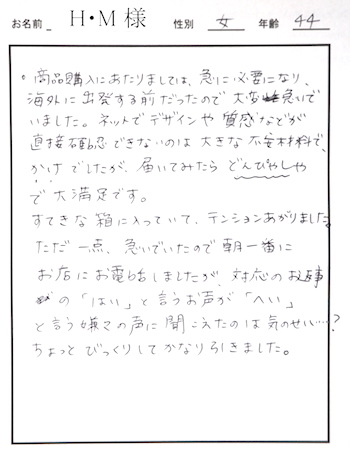 お名前 H・M 様 性別 女 年齢 44
。商品購入にあたりましては、急に必要になり、
海外に出発する前だったので大変急いで
いました。ネットでデザインや質感などが
直接確認できないのは大きな不安材料で、
かけでしたが、届いてみたらどんぴしゃ
で大満足です。
すてきな箱に入っていて、テンションあがりました。
ただ一点、急いでいたので朝一番に
お店にお電話しましたが、対応のお返事
の「はい」と言うお声が「へい」
と言う嫌々の声に聞こえたのは気のせい…?
ちょっとびっくりしてかなり引きました。